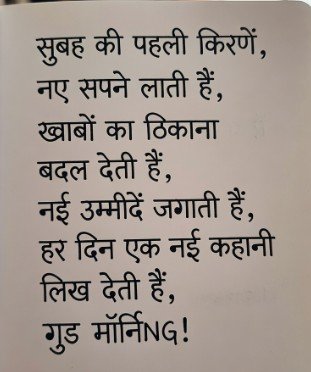 सुबह की पहली किरणें,
नए सपने लाती हैं,
ख्वाबों का ठिकाना
बदल देती हैं,
नई उम्मीदें जगाती हैं,
हर दिन एक नई कहानी
लिख देती हैं,
गुड मॉर्निNG!